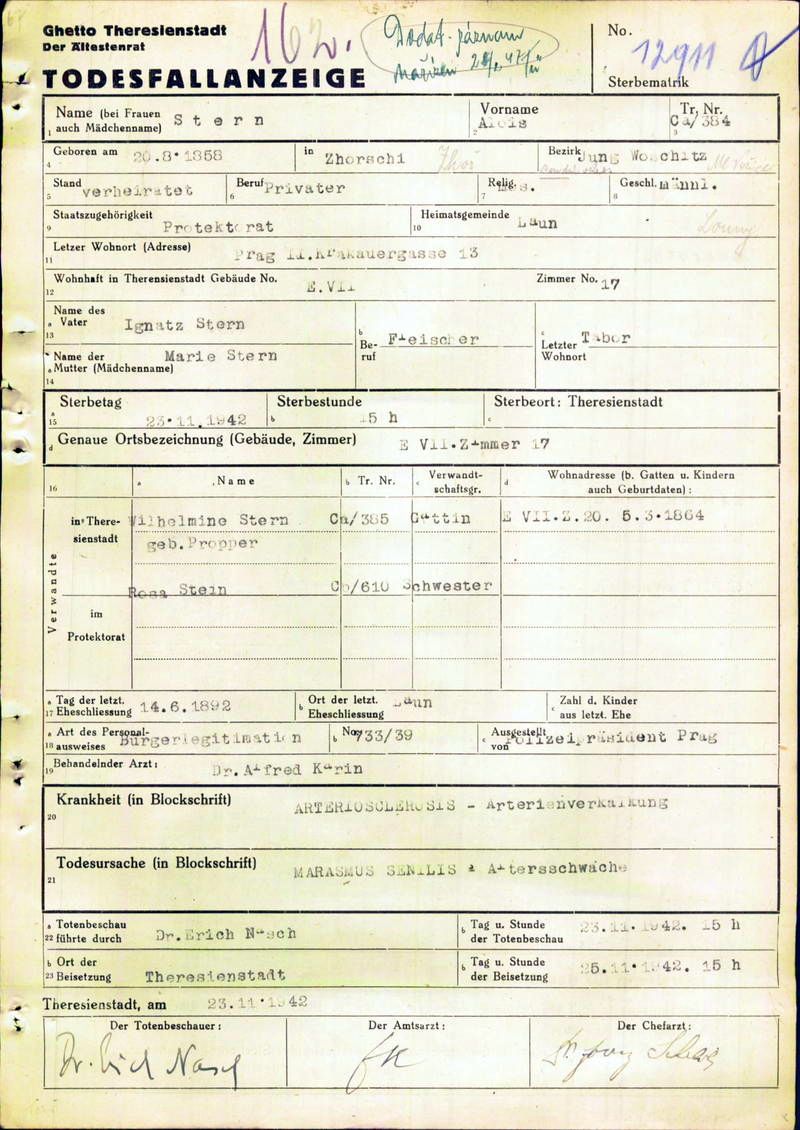 Ghetto Theresienstadt
Der Ältestenrat
TODESFALLANZEIGE
162.
Dodat.
No. 12911
Sterbematrik
Name (bei Frauen auch Mädchenname) Stern
Vorname Alois
Tr. Nr. Ca/384
Geboren am 20.8.1858
in Zhorschi
Bezirk Jung Woschitz
Stand verheiratet
Beruf Privater
Relig. mos.
Geschl. männl.
Staatszugehörigkeit Protektorat
Heimatsgemeinde Laun
Louny
Letzer Wohnort (Adresse) Prag II.Krakauergasse 13
Wohnhaft in Therensienstadt Gebäude No. E.VII
Zimmer No. 17
Name des Vater Ignatz Stern
Beruf Fleischer
Letzter Wohnort Tabor
Name der Mutter (Mädchenname) Marie Stern
Sterbetag 23.11.1942
Sterbestunde 15 h
Sterbeort: Theresienstadt
Genaue Ortsbezeichnung (Gebäude, Zimmer) E VII.Zimmer 17
Name
Tr. Nr.
Verwandtschaftsgr.
Wohnadresse (b. Gatten u. Kindern auch Geburtdaten):
Verwandte
in Theresienstadt
Wilhelmine Stern Ca/385 Gattin E VII.Z.20. 5.3.1864
geb.Propper
Rosa Stein Cb/610 Schwester
im Protektorat
Tag der letzt. Eheschliessung 14.6.1892
Ort der letzt. Eheschliessung Laun
Zahl d. Kinder aus letzt. Ehe
Art des Personalausweises Bürgerlegitimation
No. 733/39
Ausgestellt von Polizeipräsident Prag
Behandelnder Arzt: Dr.Alfred Karin
Krankheit (in Blockschrift) ARTERIOSCLEROSIS - Arterienverkalkung
Todesursache (in Blockschrift) MARASMUS SENILIS - Altersschwäche
Totenbeschau führte durch Dr.Erich Nasch
Tag u. Stunde der Totenbeschau 23.11.1942. 15 h
Ort der Beisetzung Theresienstadt
Tag u. Stunde der Beisetzung 25.11.1942. 15 h
Theresienstadt, am 23.11.1942
Der Totenbeschauer:
Der Amtsarzt:
Der Chefarzt:
Dr. Erich Nasch